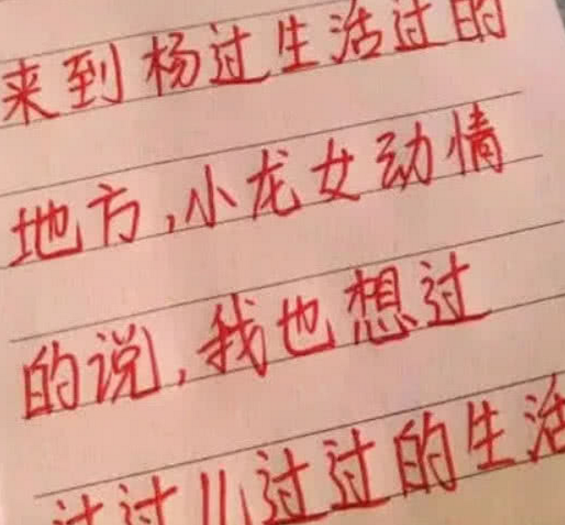 来到杨过生活过的
地方,小龙女动情
的说,我也想过
过过儿过过的生活